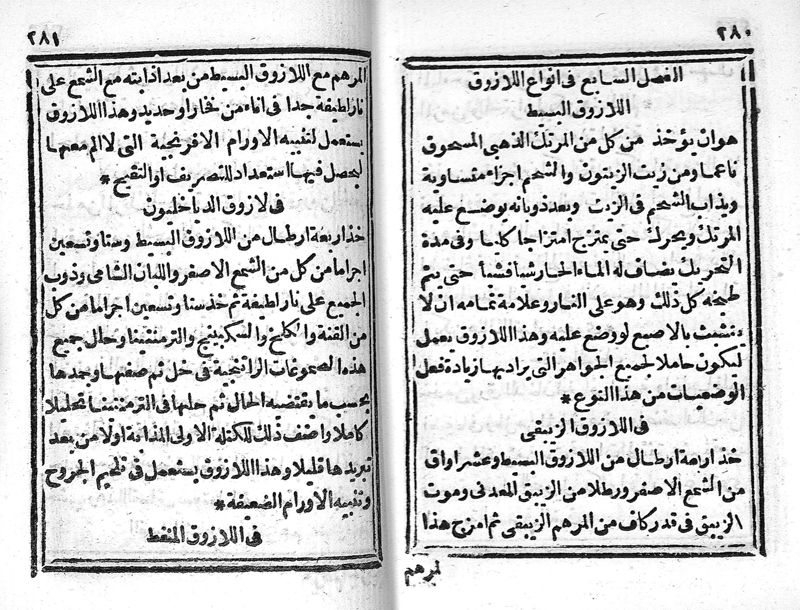 ٢٨٠
الفصل السابع فى انواع اللازوق
اللازوق البسيط
هوان يؤخذ من كل من المرتك الذهبى المسحوق
ناعما ومن زيت الزيتون والشحم اجزاء متساوية
ويذاب الشحم فى الزيت وبعد ذوبانه يوضع عليه
المرتك ويحرك حتى يمتزج امتزاجا كليا وفى مدة
التحريك يضاف له الماء الحار شيأ فشيأ حتى يتم
طبخه كل ذلك وهو على النار وعلامة تمامه ان لا
يتشبث بالاصبع لو وضع عليه وهذا اللازوق يعمل
ليكون حاملا لجميع الجواهر التى يراد بها زيادة فعل
الوضعيات من هذا النوع *
فى اللازوق الزيبقى
خذ اربعة ارطال من اللازوق البسيط وعشر اواق
من الشمع الاصفر ورطلا من الزيبق المعدنى وموت
الزيبق فى قدر كاف من المرهم الزيبقى ثم امزج هذا
لمرهم
٢٨١
المرهم مع اللازوق البسيط من بعد اذابته مع الشمع على
نار لطيفة جدا فى اناء من فخار او حديد وهذا اللازوق
يستعمل لتنبيه الاورام الافرنجية التى لا الم معها
ليحصل فيها استعداد للتصريف او التقيح *
فى لازوق الدياخليون
خذ اربعة ارطال من اللازوق البسيط وستا وتسعين
اجراما من كل من الشمع الاصفر واللبان الشامى وذوب
الجميع على نار لطيفة ثم خذ ستا وتسعين اجراما من كل
من القنة والكلخ والسكبينج والترمنتينا وحال جميع
هذه الصموغات الراتنجية فى خل ثم صفها وجدها
بحسب ما يقتضيه الحال ثم حلها فى الترمنتينا تحليلا
كاملا واضف ذلك للكتلة الاولى المذابة اولا من بعد
تبريدها قليلا وهذا اللازوق يستعمل فى تلحيم الجروح
وتنبيه الاورام الضعيفة *
فى اللازوق المنفط